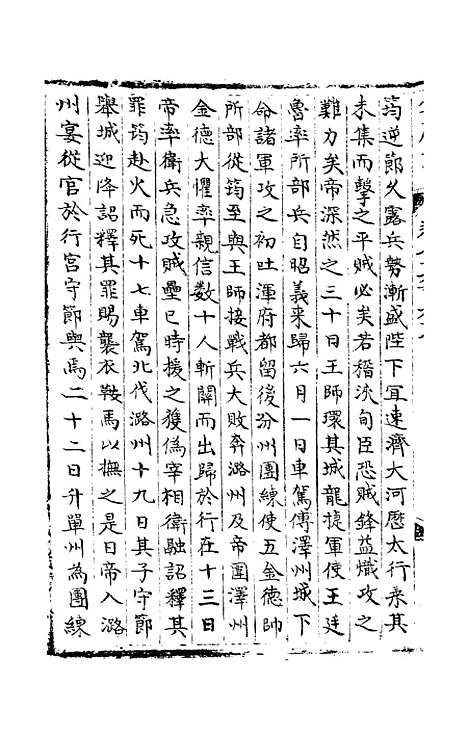 筠逆節久露兵勢漸盛陛下宜速濟大河歷太行乘其
未集而擊之平賊必矣若稽浹旬臣恐賊鋒益熾攻之
難力矣帝深然之三十日王師環其城龍捷軍使王廷
魯率所部兵自昭義來歸六月一日車駕傅澤州城下
命諸軍攻之初吐渾府都留後汾州團練使五金德帥
所部從筠至與王師接戰兵大敗奔潞州及帝圍澤州
金德大懼率親信数十人斬關而出歸於行在十三日
帝率衛兵急攻賊壘巳時援之獲偽宰相衛融詔釋其
罪筠赴火而死十七車駕北伐潞州十九日其子守節
舉城迎降詔釋其罪賜襲衣鞍馬以撫之是日帝入潞
州宴從官於行宫守節與焉二十二日升單州為團練